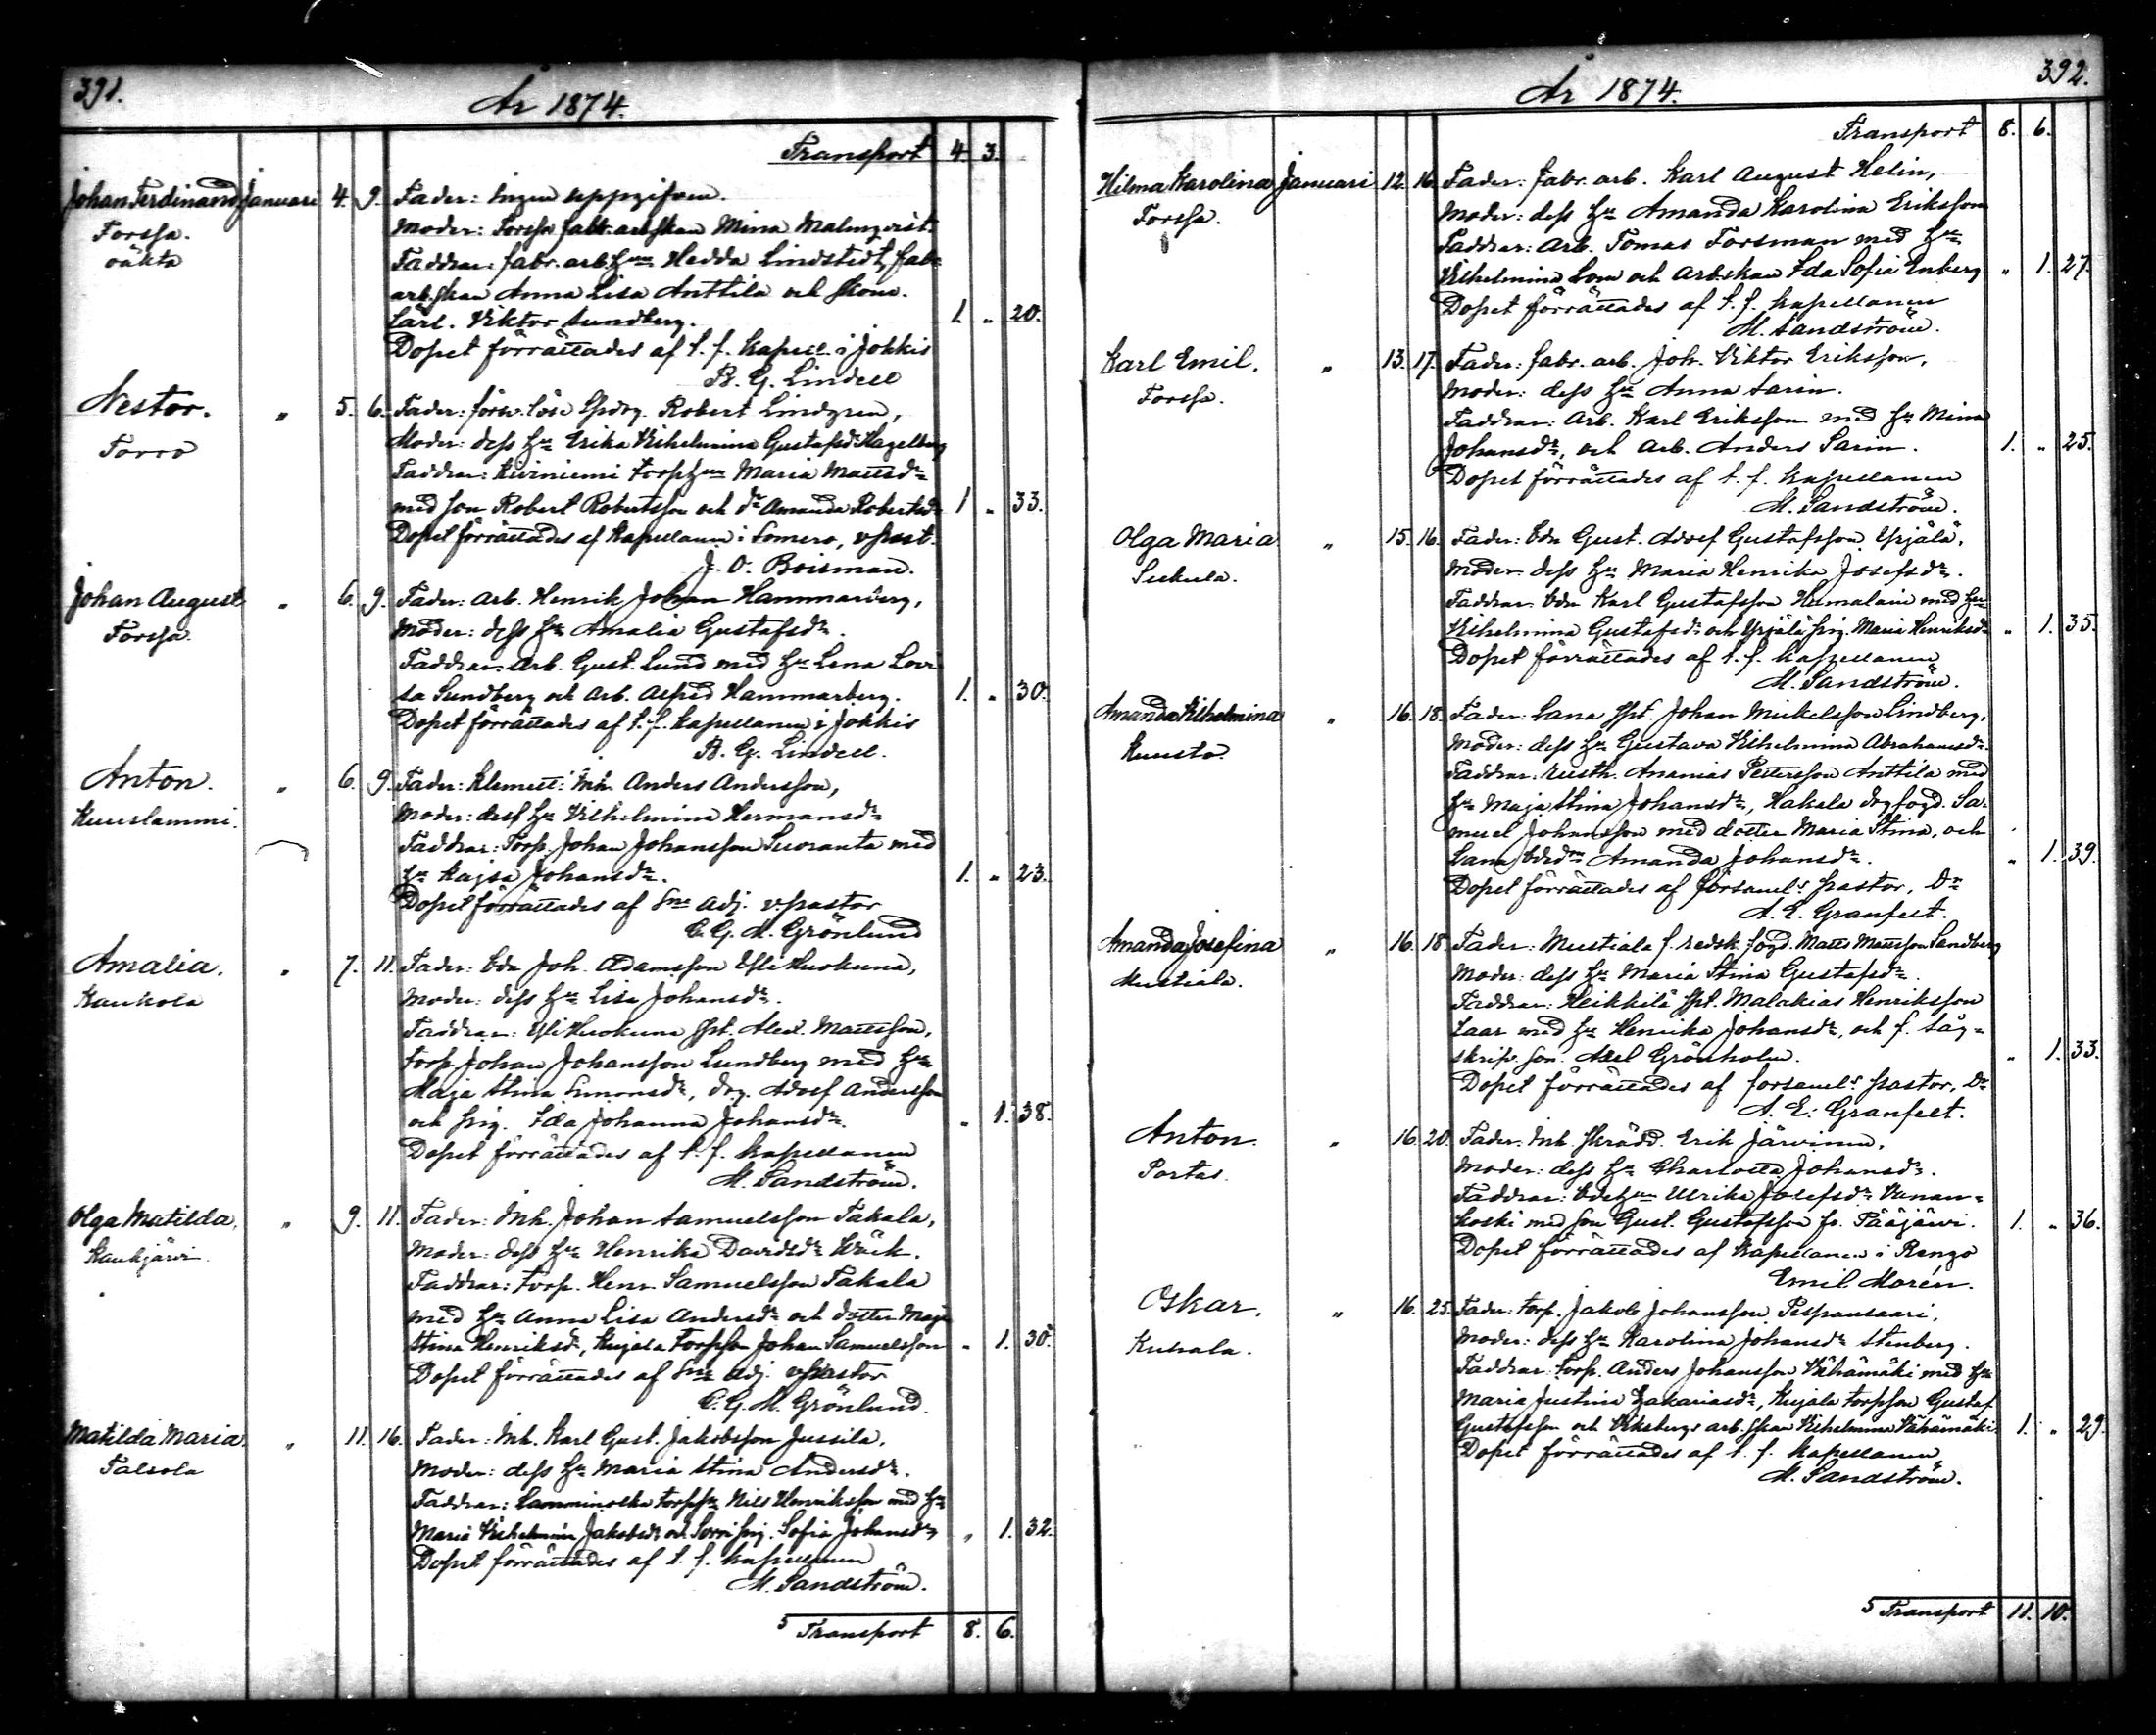 391.
År 1874.
Transport 4. 3.
Johan Ferdinand Januari 4. 9. Fader: Ingen uppgifven.
Forssa. Moder: Forssa fabr. arb.skan Mina Malmqvist.
oäkta Faddrar: fabr. arb. hu Hedda Lindstedt, fabr.
arb.skan Anna Lisa Anttila och skom.
lärl. Viktor Sundberg. 1. „ 20.
Dopet förrättades af t. f. kapell. i Jokkis
B. G. Lindell
Nestor. „ 5. 6. Fader: försv. löse Robert Lindgren,
Torro Moder: dess hu Erika Vilhelmina Gustafsdr Hagelberg
Faddrar: Kiviniemi torphu Maria Mattsdr
med son Robert Robertsson och dr Amanda Robertsdr 1 „ 33.
Dopet förrättades af kapellanen i Somero, vpast.
J. O. Boisman.
Johan August „ 6. 9. Fader: Arb. Henrik Johan Hammarberg,
Forssa. Moder: dess hu Amalia Gustafsdr.
Faddrar: Arb. Gust. Lund med hu Lena Lovi-
sa Sundberg och Arb. Alfred Hammarberg. 1. „ 30.
Dopet förrättades af t. f. kapellanen i Jokkis
B. G. Lindell.
Anton. „ 6. 9. Fader: Klemett: Inh. Anders Andersson,
Kuuslammi. Moder: dess hu Vilhelmina Hermansdr
Faddrar: Torp. Johan Johansson Suoranta med
hu Kajsa Johansdr. 1. „ 23.
Dopet förrättades af Sne adj. v.pastor
C. G. M. Grönlund
Amalia. „ 7. 11. Fader: bdn Joh. Adamsson Yli Huokuna,
Kaukola Moder: dess hu Lisa Johansdr.
Faddrar: Yli Huokuna Alex. Mattsson,
torp. Johan Johansson Lundberg med hu
Maja Stina Simonsdr, drg. Adolf Andersson
och pig. Ida Johanna Johansdr. „ 1. 38.
Dopet förrättades af t. f. kapellanen
M. Sandström.
Olga Matilda, „ 9. 11. Fader: Inh. Johan Samuelsson Takala,
Kaukjärvi. Moder: dess hu Henrika Davidsdr Wäck.
Faddrar: torp. Henr. Samuelsson Takala
med hu Anna Lisa Andersdr och dotter Maja
Stina Henriksdr, Kujala torpson Johan Samuelsson „ 1. 30.
Dopet förrättades af Sne Adj. vpastor
C. G. M. Grönlund.
Matilda Maria. „ 11. 16. Fader: Inh. Karl Gust. Jakobsson Jussila,
Talsola Moder: dess hu Maria Stina Andersdr.
Faddrar: Nils Henriksson med hu
Maria Vilhelmina Jakobsdr och pig. Sofia Johansdr „ 1. 32.
Dopet förrättades af t. f. kapellanen
M. Sandström.
5 Transport 8. 6.
392.
År 1874.
Transport 8. 6.
Hilma Karolina Januari 12. 16. Fader: fabr. arb. Karl August Helin,
Forssa. Moder: dess hu Amanda Karolina Eriksson
Faddrar: Arb. Tomas Forsman med hu
Vilhelmina och Arb.skan Ida Sofia Enberg „ 1. 27.
Dopet förrättades af t. f. kapellanen
M. Sandström.
Karl Emil. „ 13. 17. Fader: fabr. arb. Joh. Viktor Eriksson,
Forssa. Moder: dess hu Anna Sarin.
Faddrar: Arb. Karl Eriksson med hu Mina
Johansdr, och arb. Anders Sarin. 1. „ 25.
Dopet förrättades af t. f. kapellanen
M. Sandström.
Olga Maria „ 15. 16. Fader: bdn Gust. Adolf Gustafsson Yrjälä,
Sukula. Moder: dess hu Maria Henrika Josefsdr.
Faddrar: bdn Karl Gustafsson Humalain med hu
Vilhelmina Gustafsdr och Yrjälä pig. Maria Henriksdr „ 1. 35.
Dopet förrättades af t. f. kapellanen
M. Sandström.
Amanda Vilhelmina „ 16. 18. Fader: Lana Johan Mickelsson Lindberg,
Kuusto. Moder: dess hu Gustava Vilhelmina Abrahamsdr.
Faddrar: rusth. Ananias Pettersson Anttila med
hu Maja Stina Johansdr, Hakala drgfogd. Sa-
muel Johansson med dotter Maria Stina, och
Lana Amanda Johansdr. „ 1. 39.
Dopet förrättades af församl:s pastor, Dr
A. E. Granfelt.
Amanda Josefina „ 16. 18. Fader: Mustiala f. redsk. fogd. Matts Mattsson Sandberg
Mustiala. Moder: dess hu Maria Stina Gustafsdr.
Faddrar: Heikkilä Malakias Henriksson
Laar med hu Henrika Johansdr, och f. såg-
skrifv. son Axel Grönholm. „ 1. 33.
Dopet förrättades af församl:s pastor, Dr
A. E. Granfelt.
Anton. „ 16. 20. Fader: Inh. skrädd. Erik Järvinen,
Portas. Moder: dess hu Charlotta Johansdr.
Faddrar: bdehu Ulrika Josefsdr Vanan-
koski med son Gust. Gustafsson fr. Pääjärvi. 1. „ 36.
Dopet förrättades af kapellanen i Rengo
Emil Morén.
Oskar. „ 16. 25. Fader: torp. Jakob Johansson Pispansaari,
Kuhala. Moder: dess hu Karolina Johansdr Stenberg.
Faddrar: torp. Anders Johansson Vähämäki med hu
Maria Justina Zakariasdr, Kujala torpson Gustaf
Gustafsson och Viksbergs arb.skan Vilhelmina Vähämäki 1. „ 29.
Dopet förrättades af t. f. kapellanen
M. Sandström.
5 Transport 11. 10.